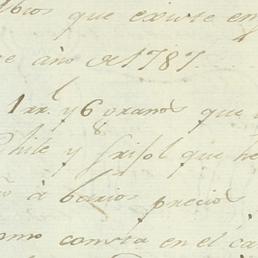 que existe en
año de 1787.
1 rr. y 6 granos que
Chile y frisol que he
à barios precios
como consta en el ca